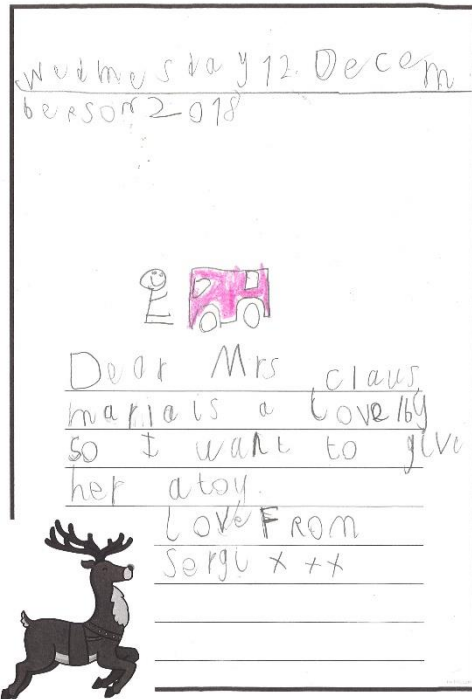 Wedmesday 12 Decem
berson 2018
Dear Mrs claus
maria is a Lovelby
so I want to give
her a toy.
Love FROM
Sergi x x x